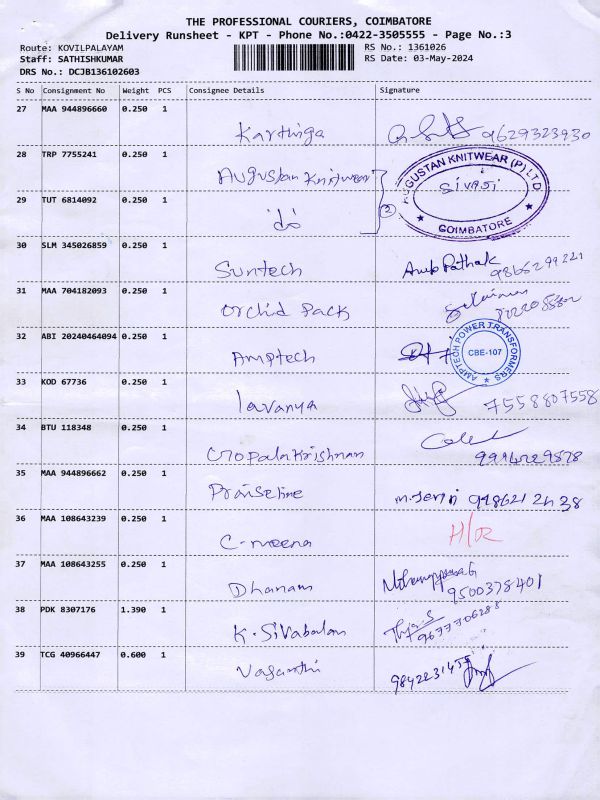 THE PROFESSIONAL COURIERS, COIMBATORE
Delivery Runsheet - KPT - Phone No.:0422-3505555 - Page No.:3
Route: KOVILPALAYAM RS No.: 1361026
Staff: SATHISHKUMAR RS Date: 03-May-2024
DRS No.: DCJB136102603
S No Consignment No Weight PCS Consignee Details Signature
27 MAA 944896660 0.250 1
Karthiga 9629323930
28 TRP 7755241 0.250 1
Auguskan Knitwear GUSTAN KNITWEAR (P) LTD
Sivaji
29 TUT 6814092 0.250 1
do 2 COIMBATORE
30 SLM 345026859 0.250 1
Suntech Anub Pathak
31 MAA 704182093 0.250 1
Orchid Pack
32 ABI 20240464094 0.250 1
Amptech AMPTECH POWER TRANSFORMERS CBE-107
33 KOD 67736 0.250 1
lavanya 7558807558
34 BTU 118348 0.250 1
Gopalakrishnan
35 MAA 944896662 0.250 1
Praiseline M. Jerin
36 MAA 108643239 0.250 1
C. meena H/R
37 MAA 108643255 0.250 1
Dhanam 9500378401
38 PDK 8307176 1.390 1
K. Sivabalan 9677706288
39 TCG 40966447 0.600 1
Vasanthi